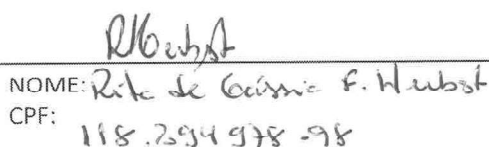 NOME: Rita de Cássia F. Herbst
CPF:
118.294978-98